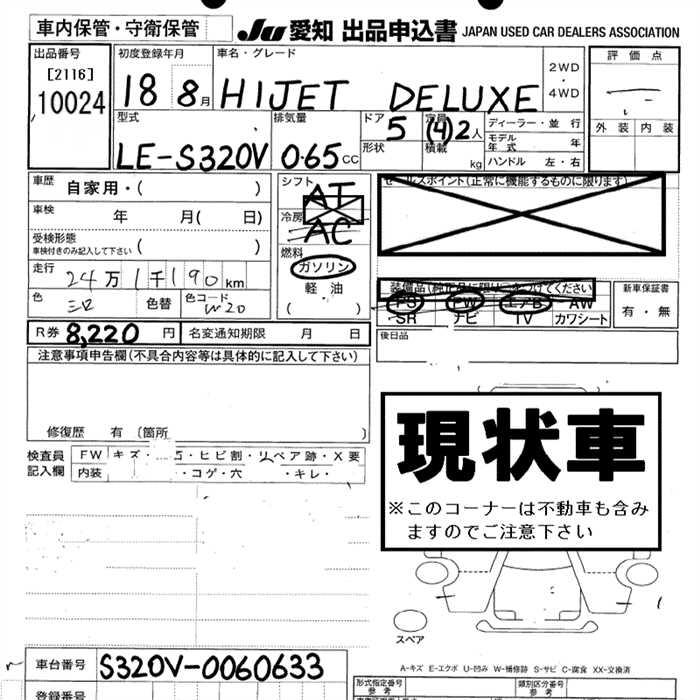 車内保管・守衛保管
JU 愛知 出品申込書 JAPAN USED CAR DEALERS ASSOCIATION
出品番号
[2116]
10024
初度登録年月
18 8月
車名・グレード
HIJET DELUXE
2WD
・
4WD
評価点
外装 内装
型式
LE-S320V
排気量
0.65 CC
ドア
5
形状
定員
(4)2人
積載 kg
ディーラー・並行
モデル年式 年
ハンドル 左・右
車歴 自家用・( )
車検 年 月( 日)
受検形態
車検付きのみ記入して下さい ( )
走行 24万1千190km
色 色替 色コード W20
シフト AT
冷房 AC
燃料
ガソリン
軽油
( )
セールスポイント(正常に機能するものに限ります)
装備品(純正品に限り○をつけてください)
PS PW エアB AW
SR ナビ TV カワシート
新車保証書
有・無
後日品
R券 8,220円 名変通知期限 月 日
注意事項申告欄(不具合内容等は具体的に記入して下さい)
修復歴 有 〔箇所 〕
検査員記入欄
FW キズ・ ・ヒビ割・リペア跡・X要
内装 ・コゲ・穴 ・キレ・
現状車
※このコーナーは不動車も含みますのでご注意下さい
スペア
A-キズ E-エクボ U-凹み W-補修跡 S-サビ C-腐食 XX-交換済
車台番号 S320V-0060633
登録番号
形式指定番号
参考
類別区分番号
参考